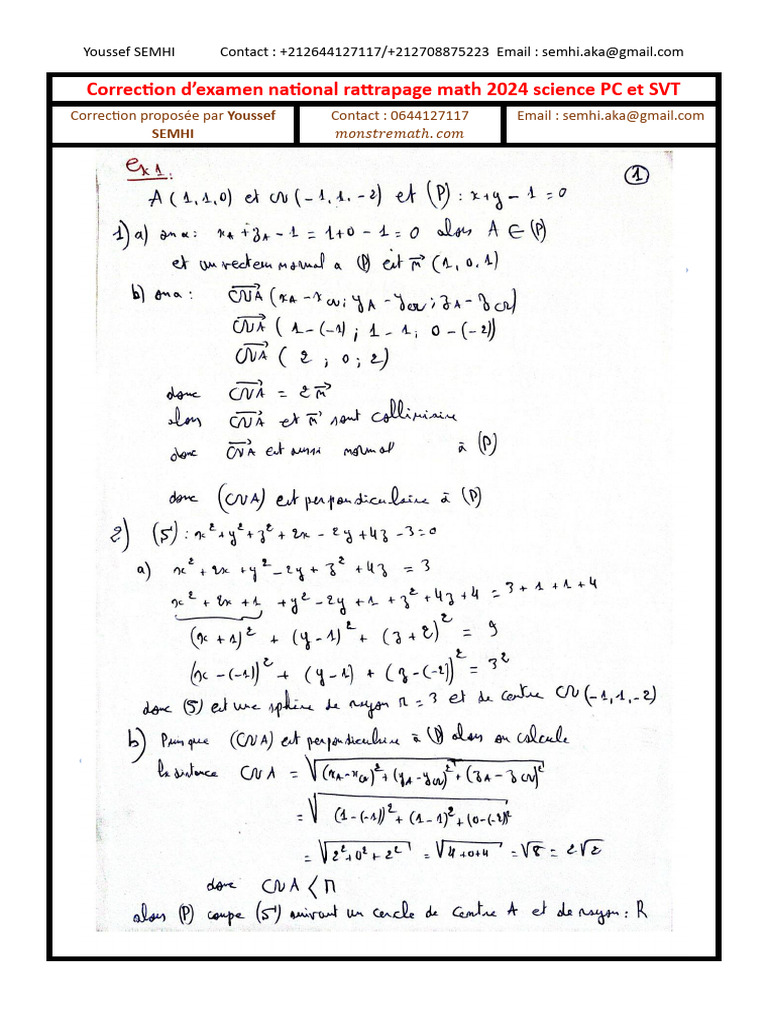 Youssef SEMHI Contact : +212644127117/+212708875223 Email : semhi.aka@gmail.com
Correction d'examen national rattrapage math 2024 science PC et SVT
Correction proposée par Youssef SEMHI
Contact : 0644127117
monstremath.com
Email : semhi.aka@gmail.com
Ex1:
1
A(1,1,0) et Ω(-1,1,-2) et (P) : x+y-1=0
1) a) on a: x_A + z_A - 1 = 1+0-1 = 0 alors A ∈ (P)
et un vecteur normal a (P) est n⃗ (1,0,1)
b) on a: ΩA⃗ (x_A - x_Ω ; y_A - y_Ω ; z_A - z_Ω)
ΩA⃗ ( 1-(-1) ; 1-1 ; 0-(-2))
ΩA⃗ ( 2 ; 0 ; 2)
donc ΩA⃗ = 2n⃗
alors ΩA⃗ et n⃗ sont colliniaire
donc ΩA⃗ est aussi normal à (P)
donc (ΩA) est perpendiculaire à (P)
2) (S) : x² + y² + z² + 2x - 2y + 4z - 3 = 0
a) x² + 2x + y² - 2y + z² + 4z = 3
x² + 2x + 1 + y² - 2y + 1 + z² + 4z + 4 = 3 + 1 + 1 + 4
(x+1)² + (y-1)² + (z+2)² = 9
(x-(-1))² + (y-1) + (z-(-2))² = 3²
donc (S) est une sphère de rayon r = 3 et de centre Ω(-1,1,-2)
b) Puisque (ΩA) est perpendiculaire à (P) alors on calcule
la distance ΩA = √((x_A-x_Ω)² + (y_A-y_Ω)² + (z_A-z_Ω)²)
= √((1-(-1))² + (1-1)² + (0-(-2)²
= √(2²+0²+2²) = √(4+0+4) = √8 = 2√2
donc ΩA < r
alors (P) coupe (S) suivant un cercle de centre A et de rayon : R